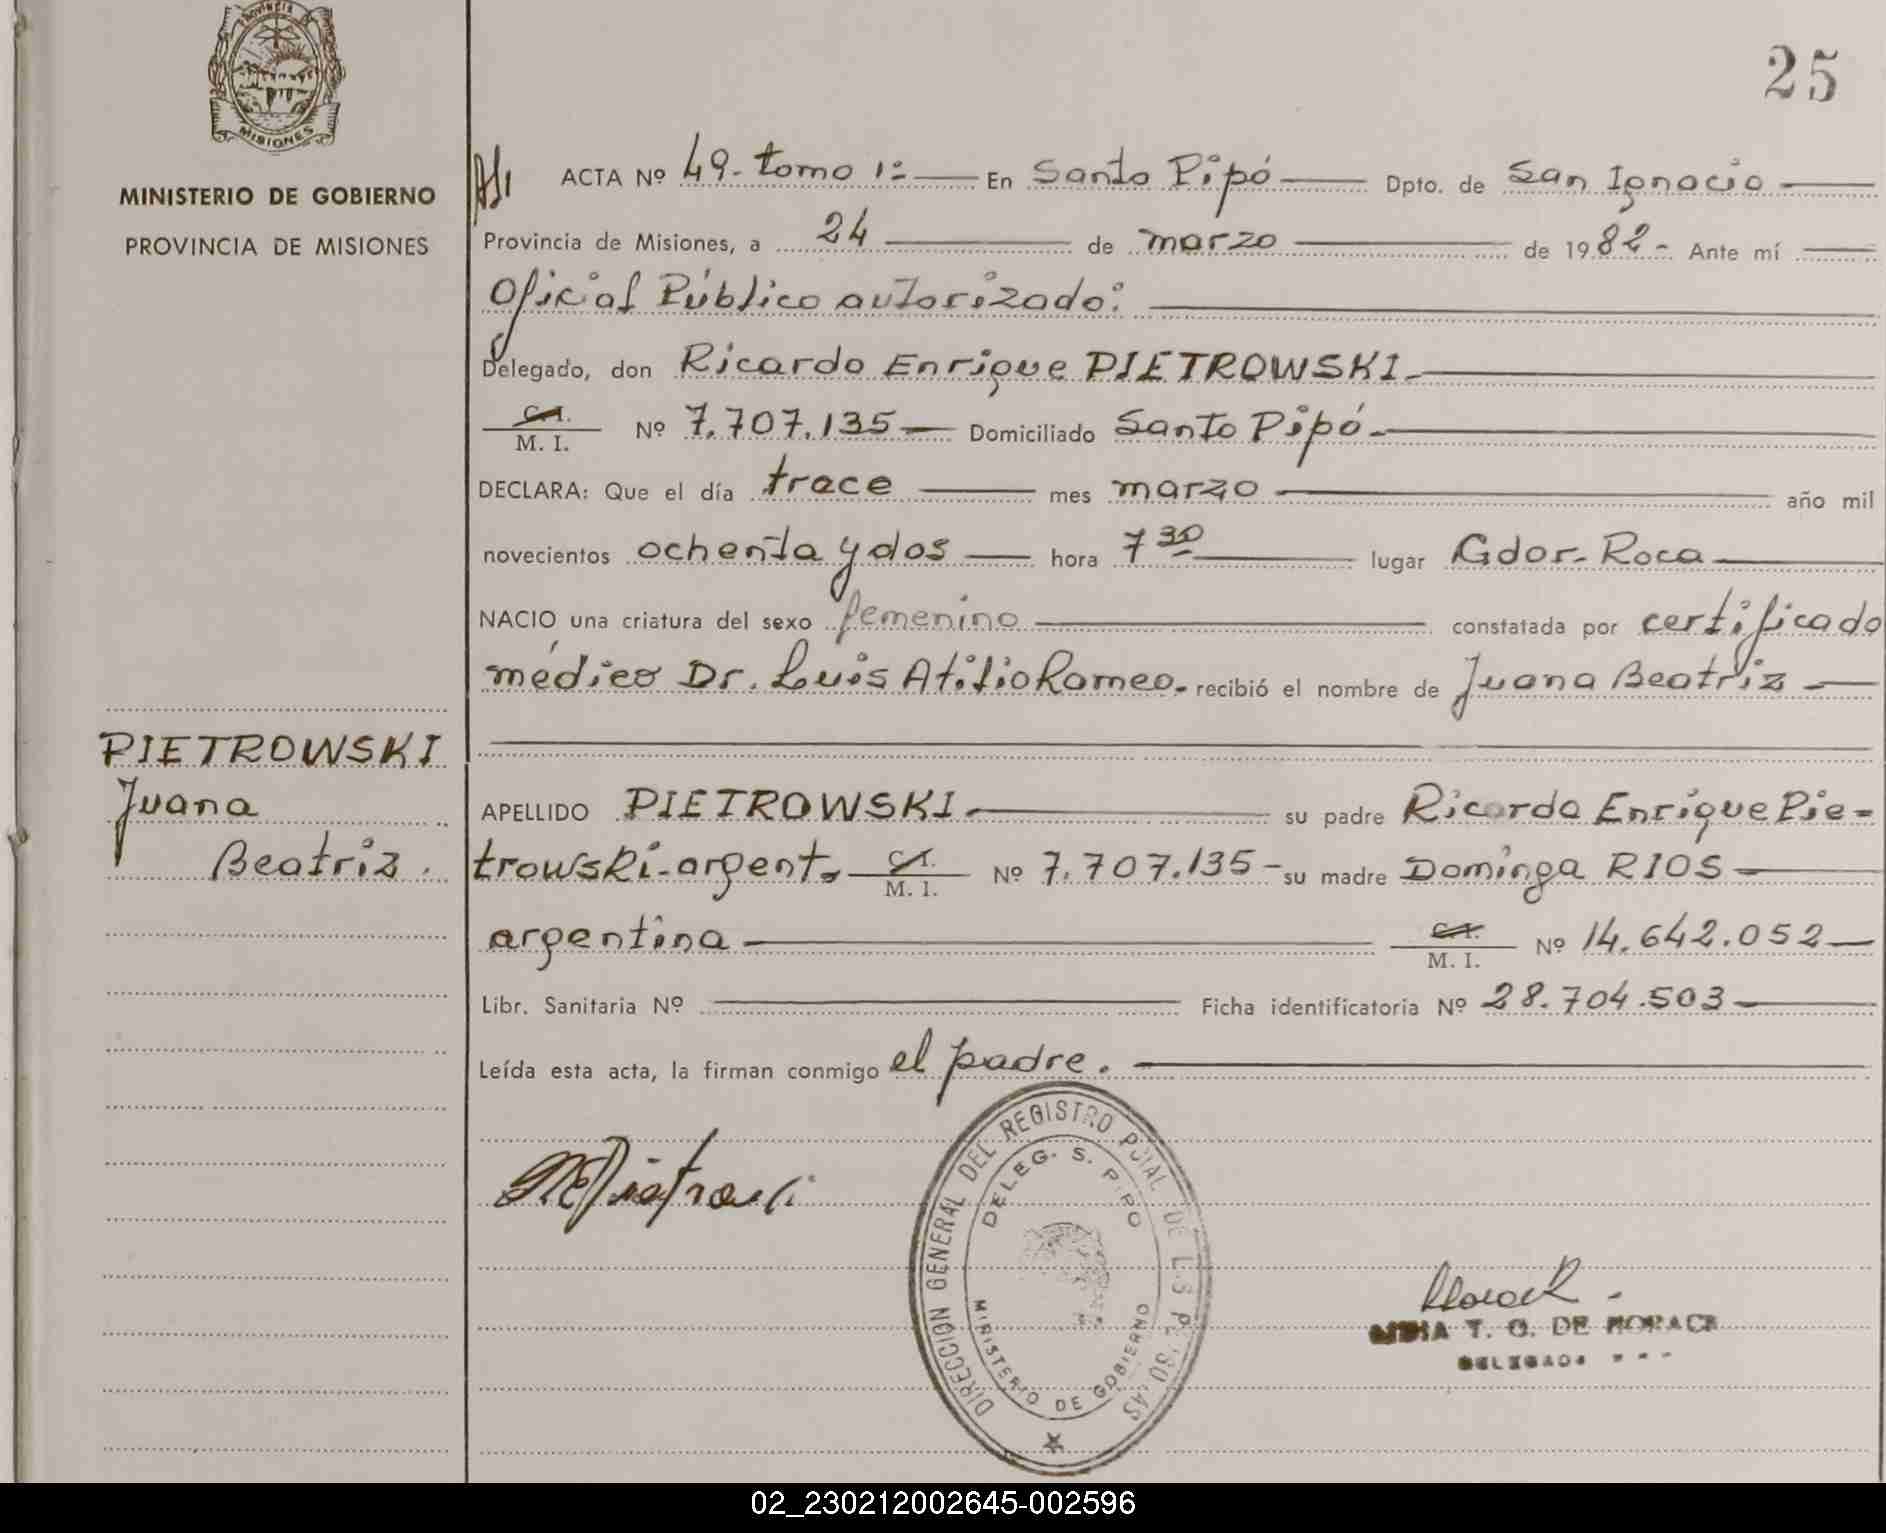 PROVINCIA DE
MISIONES
MINISTERIO DE GOBIERNO
PROVINCIA DE MISIONES
25
ACTA Nº 49- tomo 1º En Santo Pipó Dpto. de San Ignacio
Provincia de Misiones, a 24 de marzo de 1982- Ante mí
Oficial Público autorizado:
Delegado, don Ricardo Enrique PIETROWSKI.
C.I. M. I. Nº 7.707.135 Domiciliado Santo Pipó.
DECLARA: Que el día trece mes marzo año mil
novecientos ochenta y dos hora 7 30 lugar Gdor. Roca
NACIO una criatura del sexo femenino constatada por certificado
médico Dr. Luis Atilio Romeo. recibió el nombre de Juana Beatriz
PIETROWSKI
Juana
Beatriz.
APELLIDO PIETROWSKI su padre Ricardo Enrique Pie-
trowski-argent. C.I. M. I. Nº 7.707.135- su madre Dominga RIOS
argentina C.I. M. I. Nº 14.642.052
Libr. Sanitaria Nº Ficha identificatoria Nº 28.704.503
Leída esta acta, la firman conmigo el padre.
DIRECCION GENERAL DEL REGISTRO PCIAL DE L.S PE SO AS
DELEG. S. PIPO
MINISTERIO DE GOBIERNO
T. G. DE HORACK
DELEGADA
02_230212002645-002596